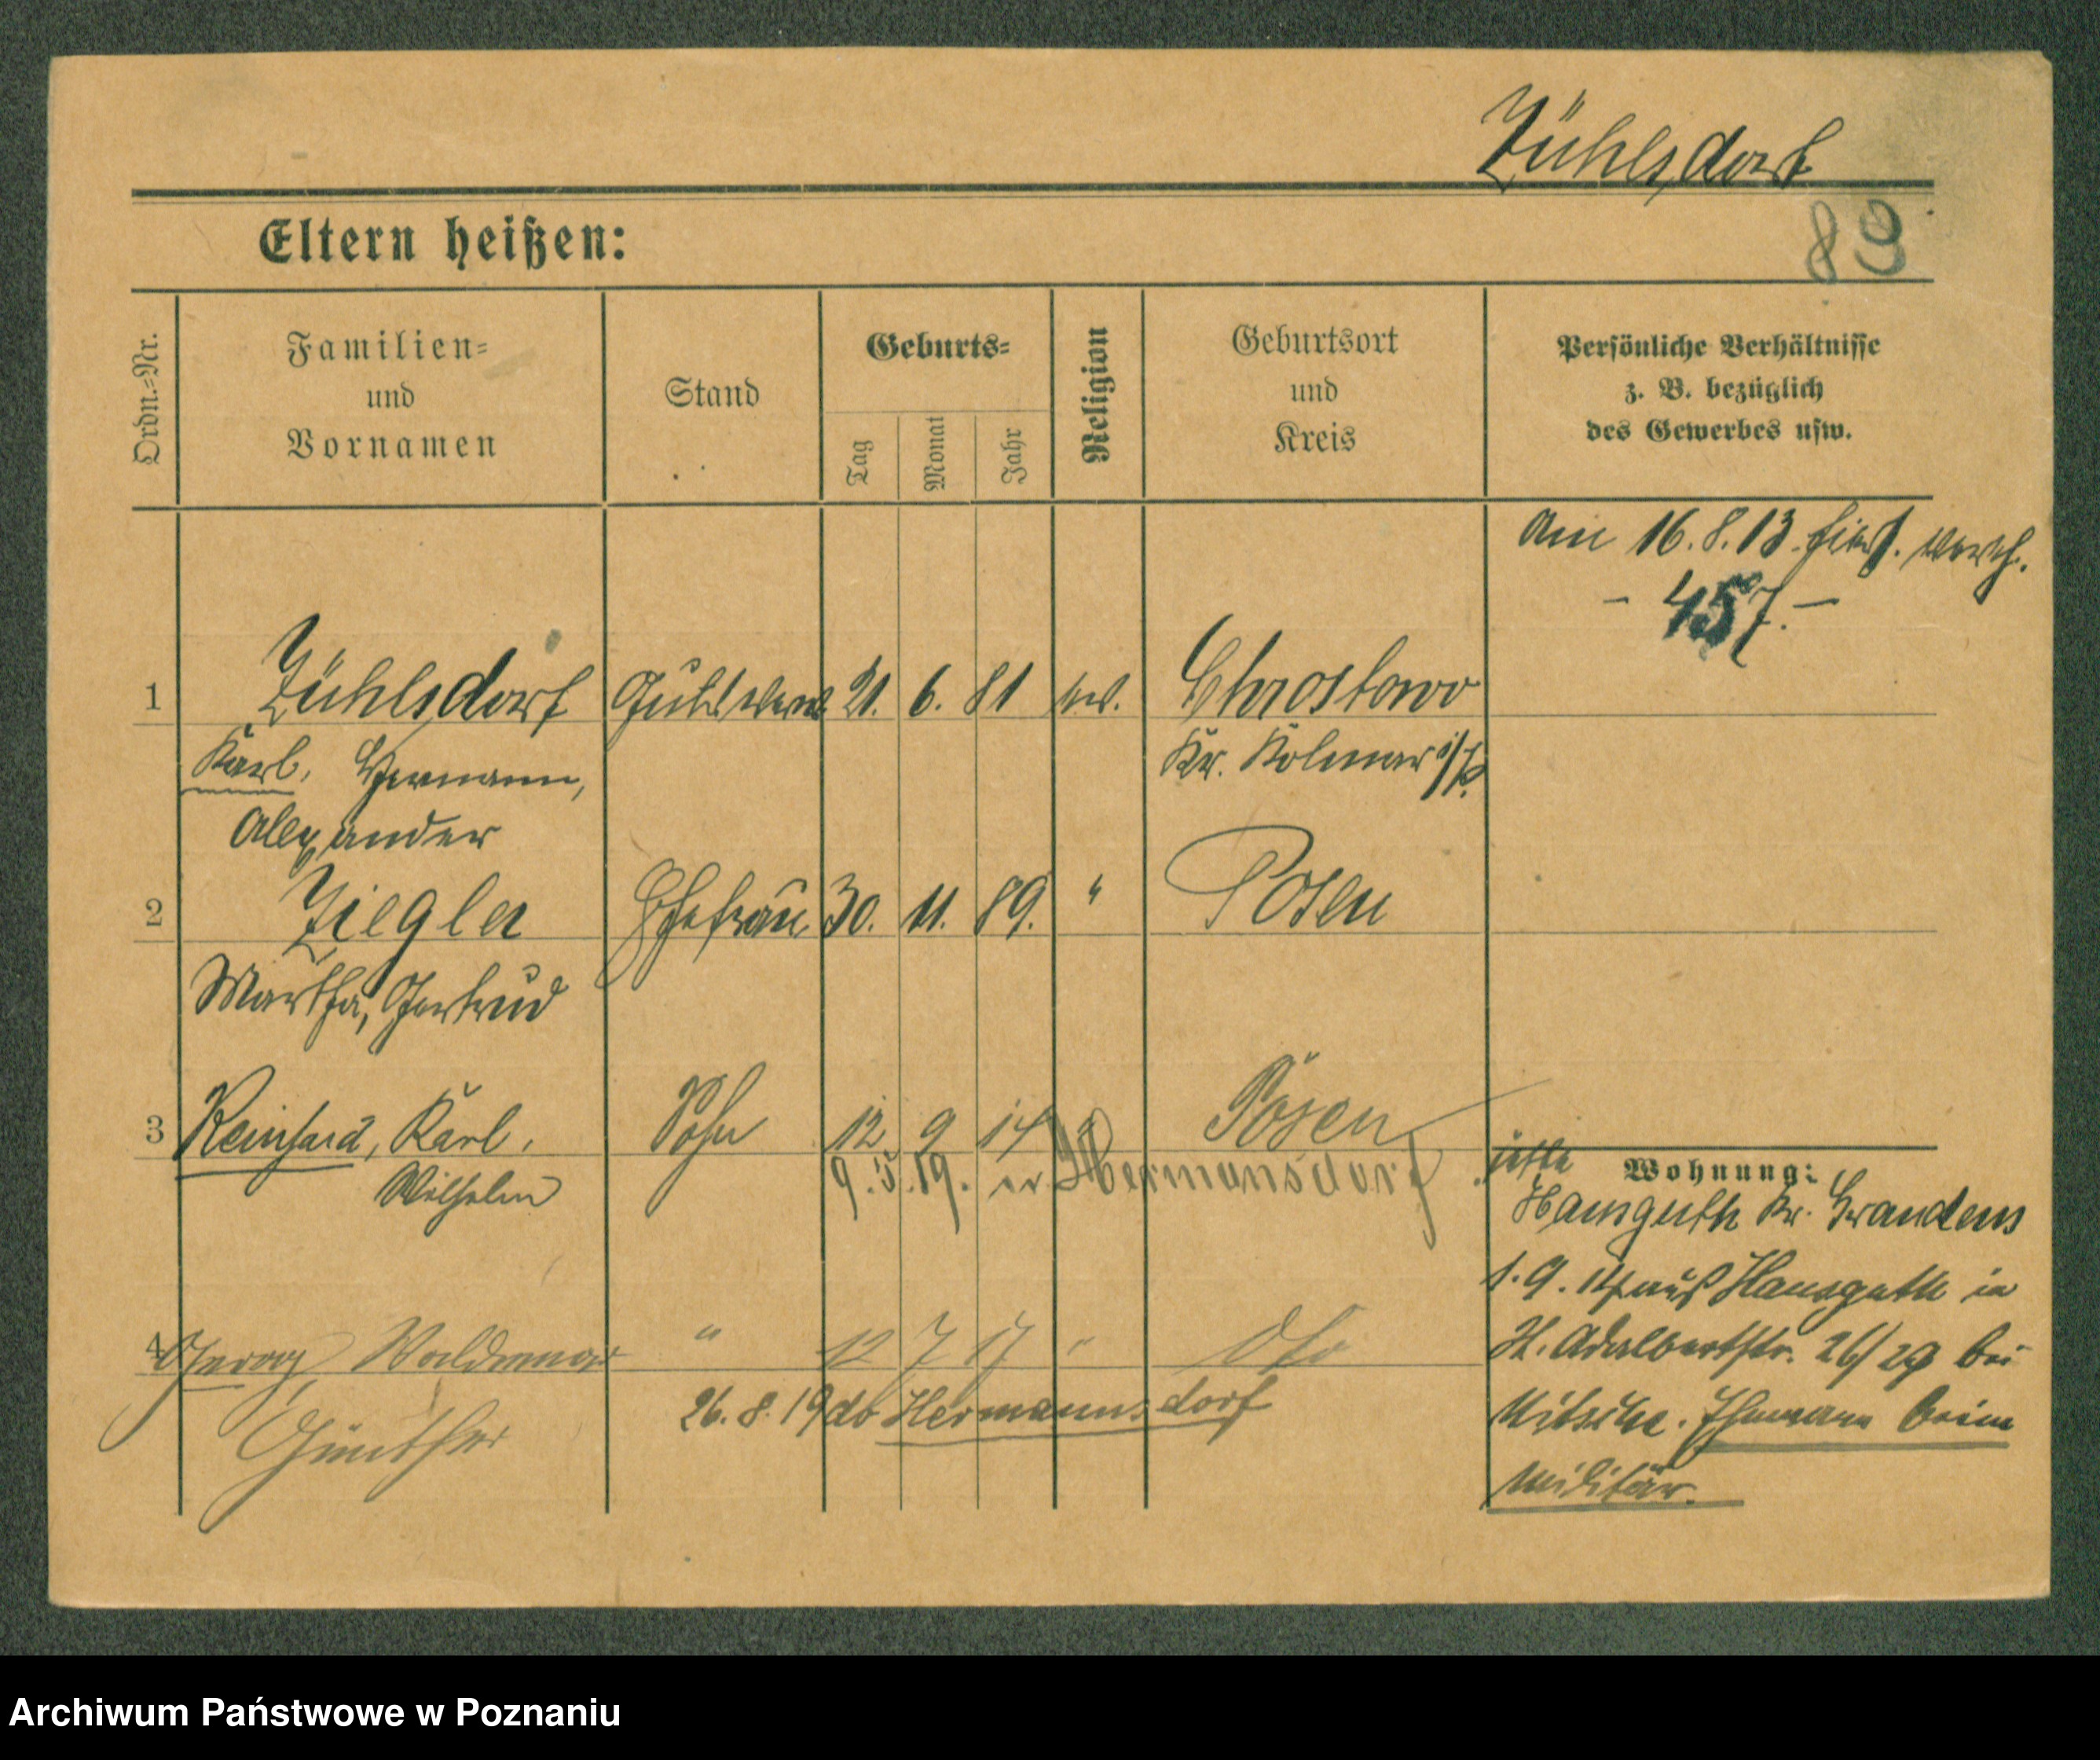 Zühlsdorf
89
Eltern heißen:
Ordn.-Nr.
Familien-
und
Vornamen
Stand
Geburts-
Tag
Monat
Jahr
Religion
Geburtsort
und
Kreis
Persönliche Verhältnisse
z. B. bezüglich
des Gewerbes usw.
Am 16.8.13 verh.
- 457. -
1 Zühlsdorf 21. 6. 81 ev. Chrostowo
Karl, Hermann, Kr. Kolmar i/P.
Alexander
2 Ziegler Ehefrau 30. 11. 89. " Posen
Martha, Gertrud
3 Reinhard, Karl, Sohn 12 9 14 " Posen
Wilhelm
9.5.19. Hermansdorf
4 Waldemar " 12 7 17 "
Günther
26.8.19 ab Hermannsdorf
Wohnung:
jetzt
Hansguth Kr. Graudenz
1.9.14 aus Hansguth in
H. Adalbertstr. 26/29 bei
Nitsche. Ehemann beim
Militär.
Archiwum Państwowe w Poznaniu